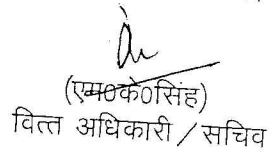 (एम0के0सिंह)
वित्त अधिकारी / सचिव